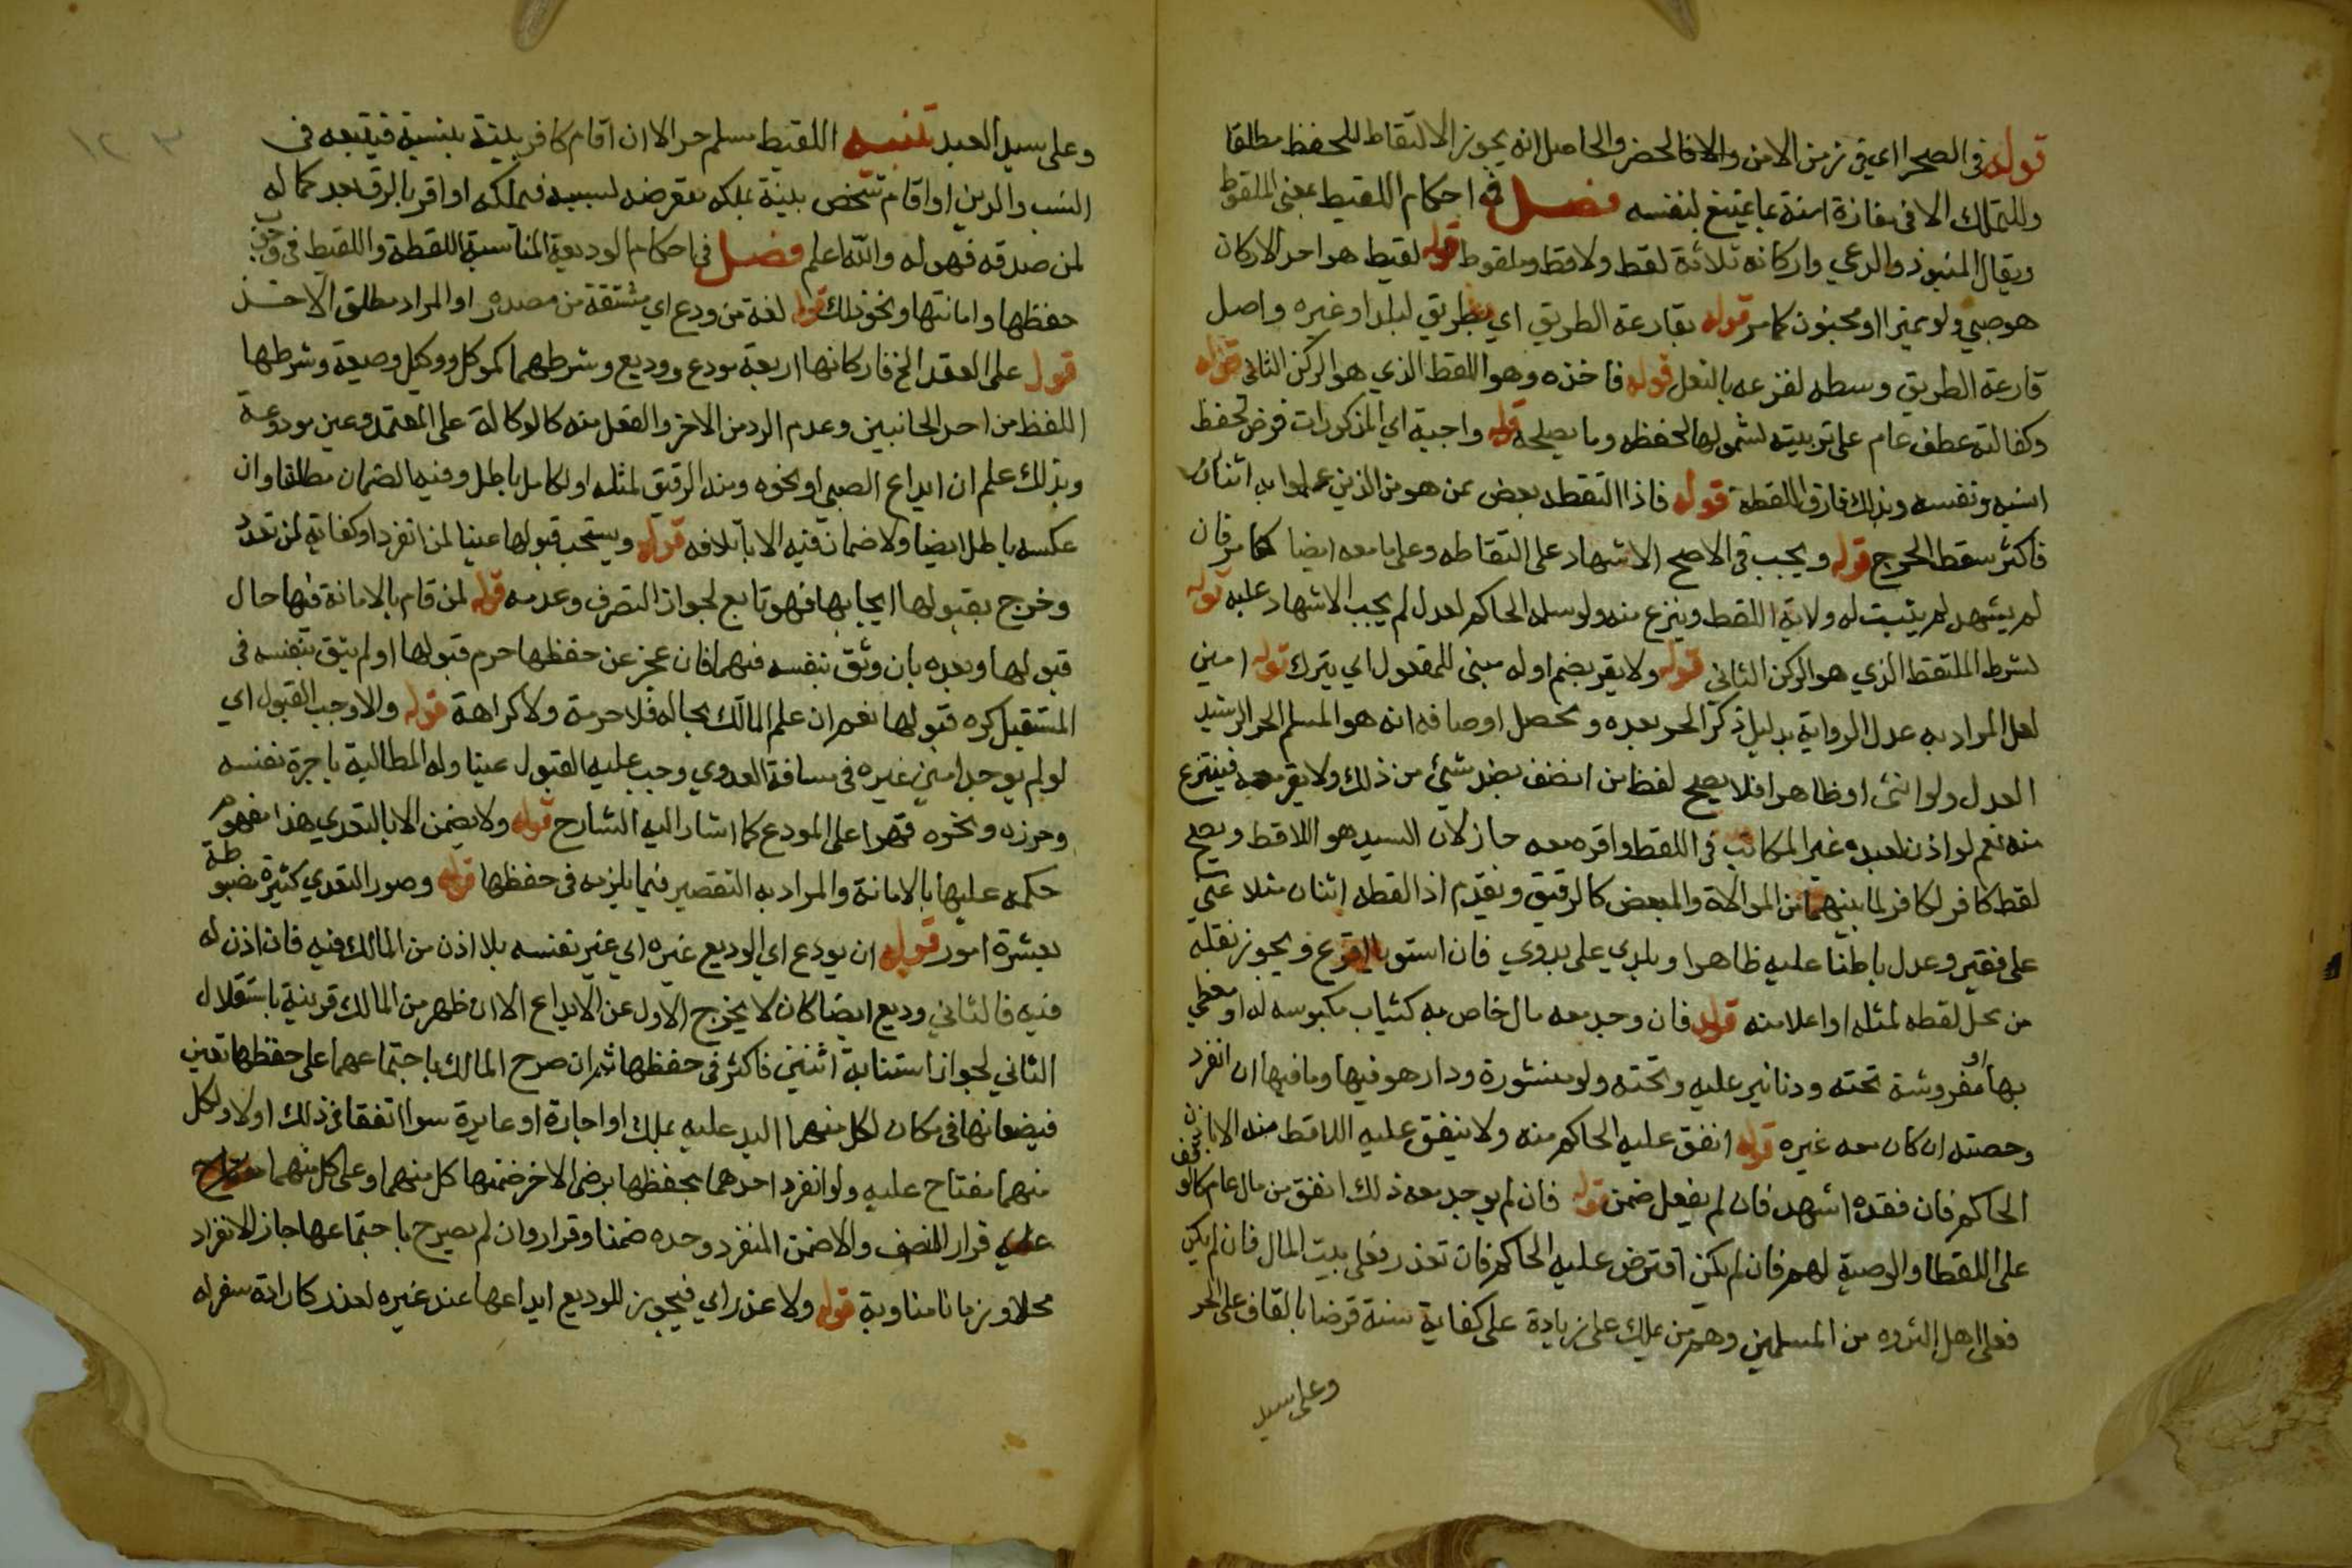 قوله في الصحرا اي في زمن الامن والا فالحضر والحاصل انه يجوز الالتقاط للحفظ مطلقا
وللتملك الا في مفازة امنة بما يمتنع بنفسه فصل في احكام اللقيط بمعنى الملقوط
ويقال المنبوذ والدعي واركانه ثلاثة لقط ولاقط وملقوط قوله لقيط هو احد الاركان
هو صبي ولو مميزا او مجنون كما مر قوله بقارعة الطريق اي بطريق البلد او غيره واصل
قارعة الطريق وسطه لقرعه بالنعل قوله فاخذه وهو اللقط الذي هو الركن الثاني قوله
وكفالته عطف عام على تربيته لشمولها لحفظه وما يصلحه قوله واجبة اي المذكورات فرض لحفظ
نسبه ونفسه وبذلك فارق اللقطة قوله فاذا التقطه بعض ممن هو من الذين علموا به اثنان
فاكثر سقط الحرج قوله ويجب في الاصح الاشهاد على التقاطه وعلى ما معه ايضا كما مر فان
لم يشهد لم يثبت له ولاية اللقط وينزع منه ولو سلمه الحاكم لعدل لم يجب الاشهاد عليه قوله
بشرط الملتقط الذي هو الركن الثاني قوله ولا يقر بضم اوله مبني للمفعول اي يترك قوله امين
لعل المراد به عدل الرواية بدليل ذكر الحر بعده ويحصل اوصافه انه هو المسلم الحر الرشيد
العدل ولو انثى او ظاهرا فلا يصح لقط من اتصف بضد شيئ من ذلك ولا يقر معه فينتزع
منه نعم لو اذن لعبده غير المكاتب في اللقط واقره معه جاز لان السيد هو اللاقط ويصح
لقط كافر لكافر لما بينهما من الموالاة والمبعض كالرقيق ويقدم اذا لقطه اثنان مثلا غني
على فقير وعدل باطنا عليه ظاهرا وبلدي على بدوي فان استويا اقرع ويجوز نقله
من محل لقطه لمثله او اعلا منه قوله فان وجد معه مال خاص به كثياب ملبوسه له او مغطي
بها او مفروشة تحته ودنانير عليه وتحته ولو منثورة ودار هو فيها وما فيها ان انفرد
وحصته ان كان معه غيره قوله انفق عليه الحاكم منه ولا ينفق عليه اللاقط منه الا باذن
الحاكم فان فقده اشهد فان لم يفعل ضمن قوله فان لم يوجد معه ذلك انفق من مال عام كالوقف
على اللقطا والوصية لهم فان لم يكن اقترض عليه الحاكم فان تعذر فعلى بيت المال فان لم يكن
فعلى اهل الثروه من المسلمين وهم من يملك على زيادة على كفاية سنة قرضا بالقاف على الحر
وعلى سيد
وعلى سيد العبد تنبيه اللقيط مسلم حر الا ان اقام كافر بينة بنسبة فيتبعه في
النسب والدين او اقام شخص بينة بملكه بتعرض لسببه فيملكه او اقر بالرق بعد كماله
لمن صدقه فهو له والله اعلم فصل في احكام الوديعة المناسبة اللقطة واللقيط في وجوب
حفظها وامانتها ونحو ذلك قوله لغة من ودع اي مشتقة من مصدره او المراد مطلق الاخذ
قوله على العقد الخ فاركانها اربعة مودع ووديع وشرطهما كموكل ووكيل وصيغة وشرطها
اللفظ من احد الجانبين وعدم الرد من الاخر والفعل منه كالوكالة على المعتمد وعين مودوعة
وبذلك علم ان ايداع الصبي او نحوه ومنه الرقيق لمثله او لكامل باطل وفيه الضمان مطلقا وان
عكسه باطل ايضا ولا ضمان فيه الا باتلافه قوله ويستحب قبولها عينا لمن انفرد او كفاية لمن تعدد
وخرج بقبولها ايجابها فهو تابع لجواز التصرف وعدمه قوله لمن قام بالامانة فيها حال
قبولها وبعده بان وثق بنفسه فيهما فان عجز عن حفظها حرم قبولها او لم يثق بنفسه في
المستقبل كره قبولها نعم ان علم المالك بحاله فلا حرمة ولا كراهة قوله والا وجب القبول اي
لو لم يوجد امين غيره في مسافة العدوي وجب عليه القبول عينا وله المطالبة باجرة نفسه
وحرزه ونحوه قهرا على المودع كما اشار اليه الشارح قوله ولا يضمن الا بالتعدي هذا مفهوم
حكمه عليها بالامانة والمراد به التقصير فيما يلزمه في حفظها قوله وصور التعدي كثيرة مضبوطة
بعشرة امور قوله ان يودع اي الوديع غيره اي غير نفسه بلا اذن من المالك فيه فان اذن له
فيه فالثاني وديع ايضا كان لا يخرج الاول عن الايداع الا ان ظهر من المالك قرينة باستقلال
الثاني لجواز استنابة اثنين فاكثر في حفظها ثم ان صرح المالك باجتماعهما على حفظها تعين
فيضعانها في مكان لكل منهما اليد عليه بملك او اجارة او عارية سوا اتفقا في ذلك او لا ولكل
منهما مفتاح عليه ولو انفرد احدهما بحفظها برضى الاخر ضمنها كل منهما وعلى كل منهما
قرار النصف والا ضمن المنفرد وحده ضمنا وقرار وان لم يصرح باجتماعهما جاز الانفراد
محلا وزمانا مناوبة قوله ولا عذر اي فيجوز للوديع ايداعها عند غيره لعذر كارادة سفر له